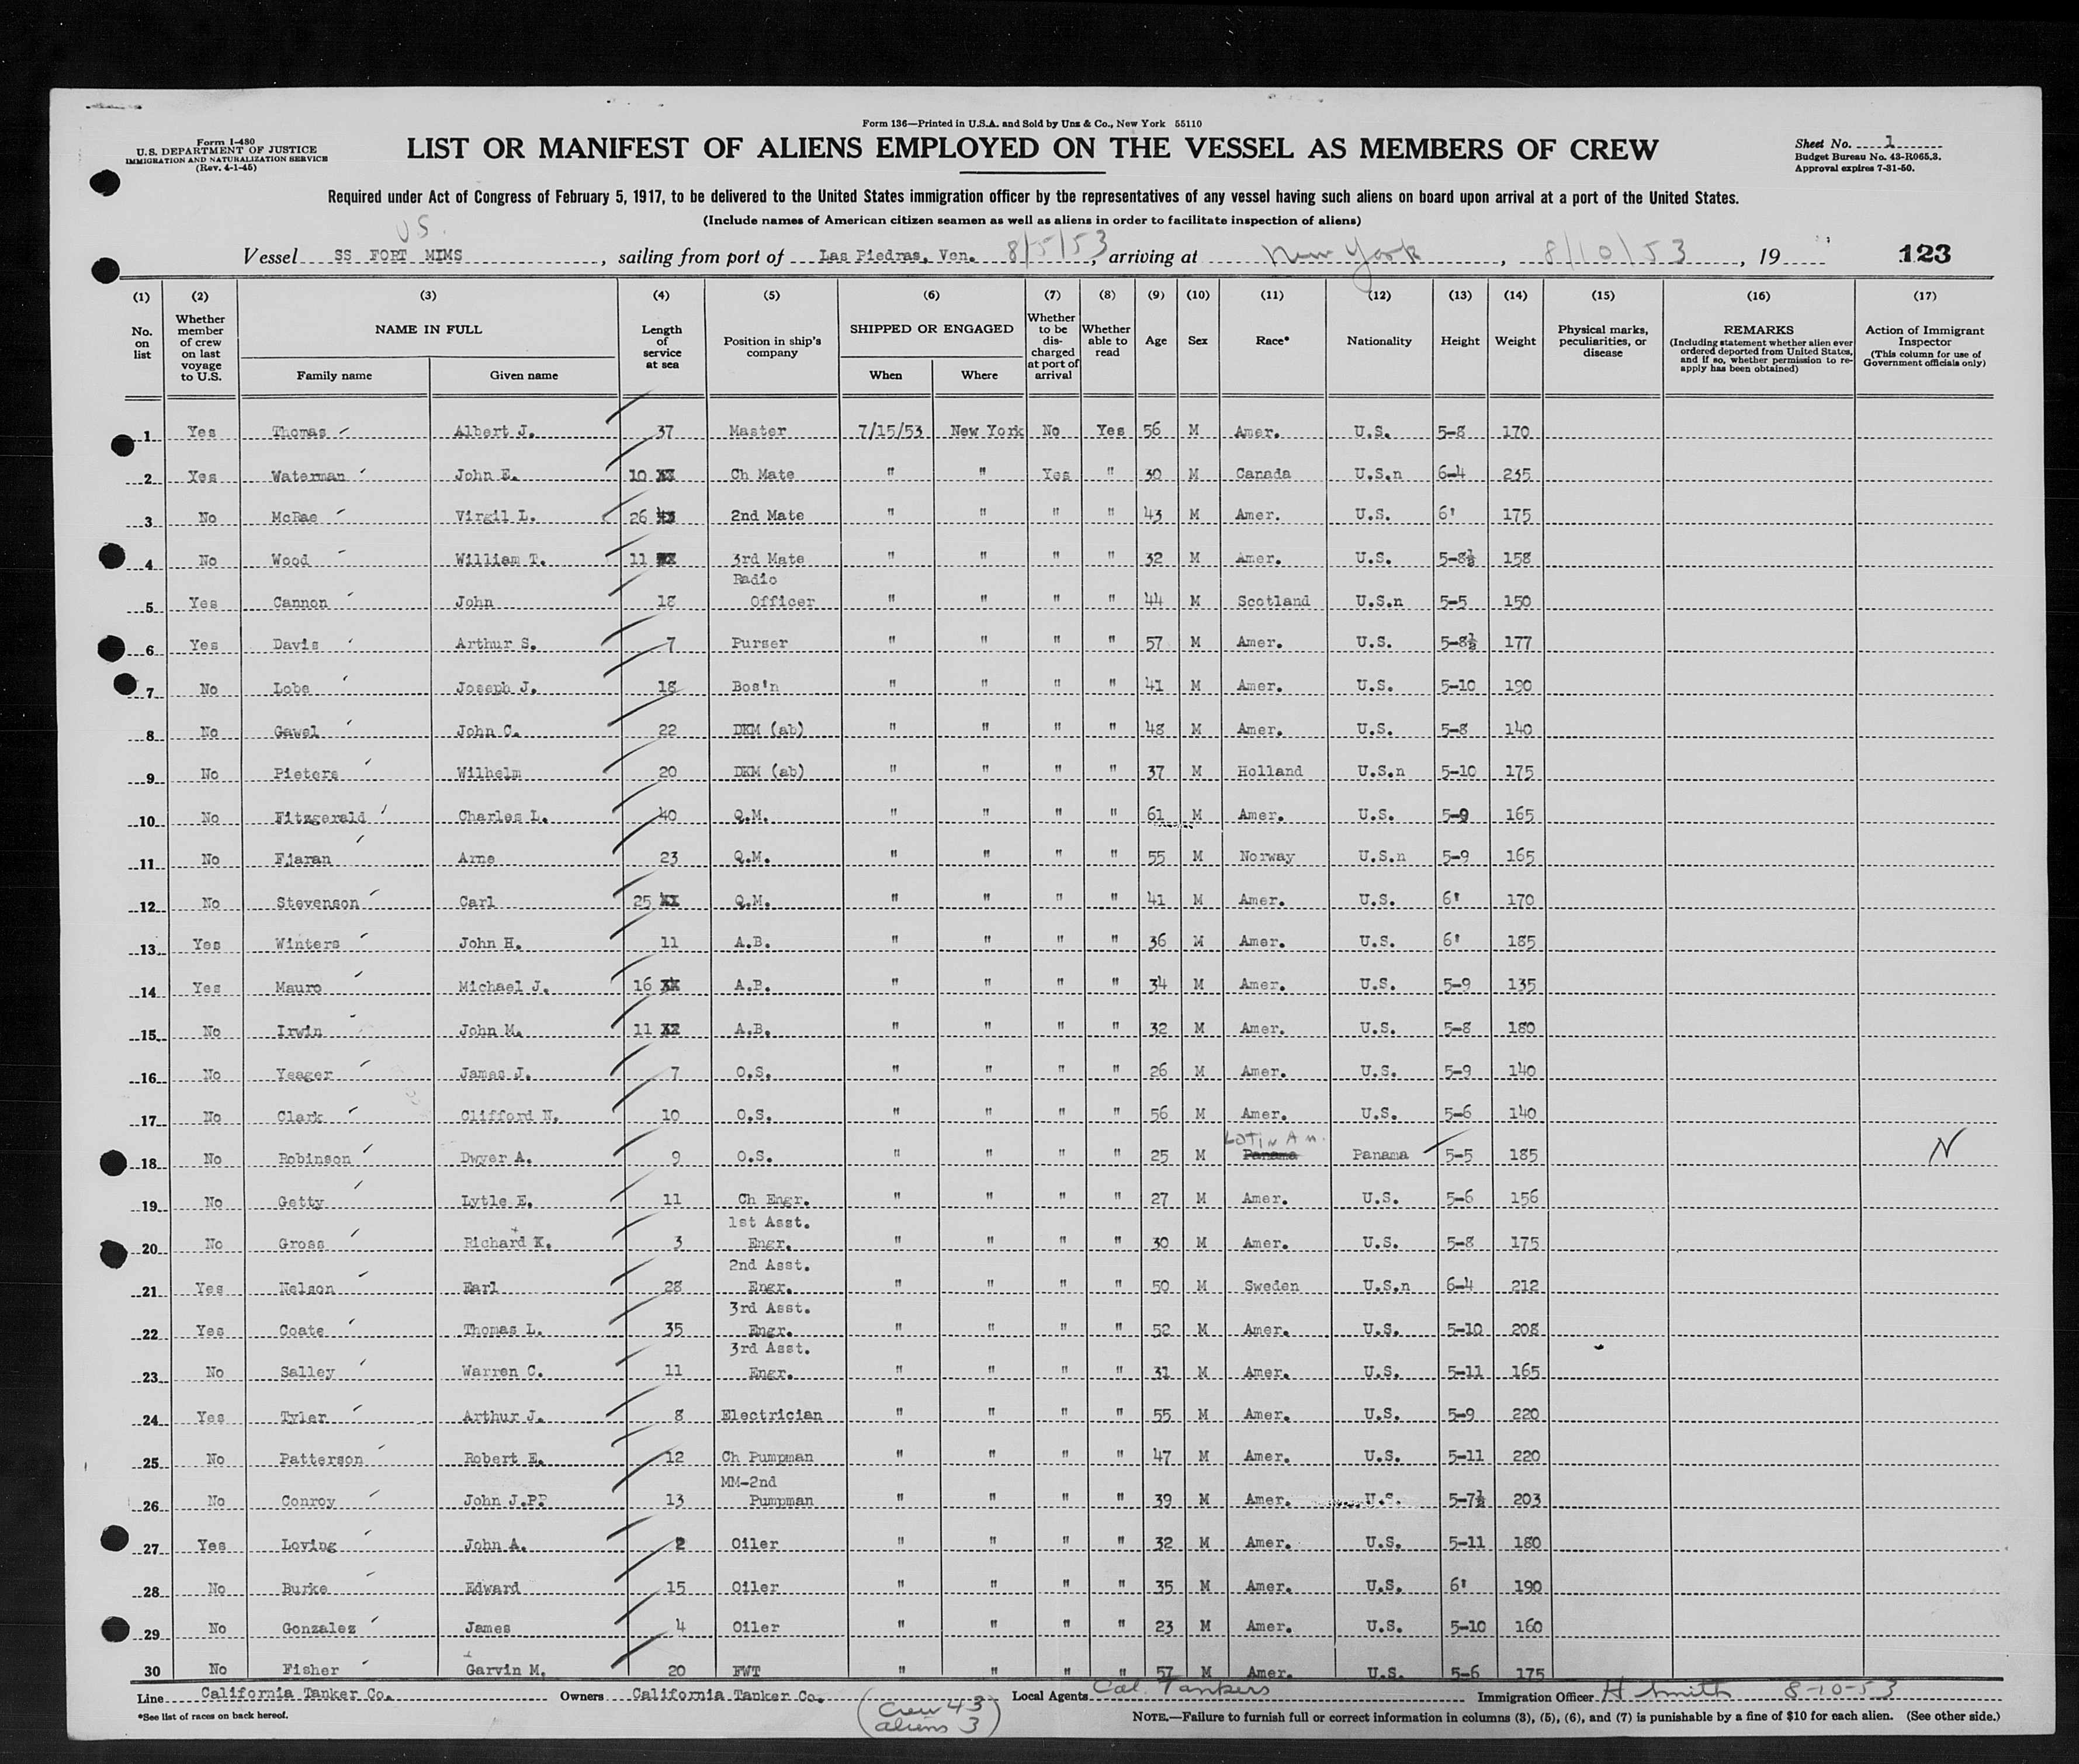 Form 136—Printed in U.S.A. and Sold by Unz & Co., New York 55110
Form I-480
U.S. DEPARTMENT OF JUSTICE
IMMIGRATION AND NATURALIZATION SERVICE
(Rev. 4-1-45)
LIST OR MANIFEST OF ALIENS EMPLOYED ON THE VESSEL AS MEMBERS OF CREW
Sheet No. 1
Budget Bureau No. 43-R065.3.
Approval expires 7-31-50.
Required under Act of Congress of February 5, 1917, to be delivered to the United States immigration officer by the representatives of any vessel having such aliens on board upon arrival at a port of the United States.
(Include names of American citizen seamen as well as aliens in order to facilitate inspection of aliens)
US.
Vessel SS FORT MIMS, sailing from port of Las Piedras, Ven. 8/5/53, arriving at New York, 8/10/53, 19 123
(1) (2) (3) (4) (5) (6) (7) (8) (9) (10) (11) (12) (13) (14) (15) (16) (17)
No. on list
Whether member of crew on last voyage to U.S.
NAME IN FULL
Family name Given name
Length of service at sea
Position in ship's company
SHIPPED OR ENGAGED
When Where
Whether to be discharged at port of arrival
Whether able to read
Age Sex Race* Nationality Height Weight
Physical marks, peculiarities, or disease
REMARKS
(Including statement whether alien ever ordered deported from United States, and if so, whether permission to re-apply has been obtained)
Action of Immigrant Inspector
(This column for use of Government officials only)
1 Yes Thomas Albert J. 37 Master 7/15/53 New York No Yes 56 M Amer. U.S. 5-8 170
2 Yes Waterman John E. 10 Ch Mate " " Yes " 30 M Canada U.S.n 6-4 235
3 No McRae Virgil L. 26 2nd Mate " " " " 43 M Amer. U.S. 6' 175
4 No Wood William T. 11 3rd Mate " " " " 32 M Amer. U.S. 5-8½ 158
5 Yes Cannon John 18 Radio Officer " " " " 44 M Scotland U.S.n 5-5 150
6 Yes Davis Arthur S. 7 Purser " " " " 57 M Amer. U.S. 5-8½ 177
7 No Lobe Joseph J. 18 Bos'n " " " " 41 M Amer. U.S. 5-10 190
8 No Gawel John C. 22 DKM (ab) " " " " 48 M Amer. U.S. 5-8 140
9 No Pieters Wilhelm 20 DKM (ab) " " " " 37 M Holland U.S.n 5-10 175
10 No Fitzgerald Charles L. 40 Q.M. " " " " 61 M Amer. U.S. 5-9 165
11 No Fjaran Arne 23 Q.M. " " " " 55 M Norway U.S.n 5-9 165
12 No Stevenson Carl 25 Q.M. " " " " 41 M Amer. U.S. 6' 170
13 Yes Winters John H. 11 A.B. " " " " 36 M Amer. U.S. 6' 185
14 Yes Mauro Michael J. 16 A.B. " " " " 34 M Amer. U.S. 5-9 135
15 No Irwin John M. 11 A.B. " " " " 32 M Amer. U.S. 5-8 180
16 No Yeager James J. 7 O.S. " " " " 26 M Amer. U.S. 5-9 140
17 No Clark Clifford N. 10 O.S. " " " " 56 M Amer. U.S. 5-6 140
Latin Am.
18 No Robinson Dwyer A. 9 O.S. " " " " 25 M Panama Panama 5-5 185 N
19 No Getty Lytle E. 11 Ch Engr. " " " " 27 M Amer. U.S. 5-6 156
20 No Gross Richard K. 3 1st Asst. Engr. " " " " 30 M Amer. U.S. 5-8 175
21 Yes Nelson Earl 28 2nd Asst. Engr. " " " " 50 M Sweden U.S.n 6-4 212
22 Yes Coate Thomas L. 35 3rd Asst. Engr. " " " " 52 M Amer. U.S. 5-10 208
23 No Salley Warren C. 11 3rd Asst. Engr. " " " " 31 M Amer. U.S. 5-11 165
24 Yes Tyler Arthur J. 8 Electrician " " " " 55 M Amer. U.S. 5-9 220
25 No Patterson Robert E. 12 Ch Pumpman " " " " 47 M Amer. U.S. 5-11 220
26 No Conroy John J.P. 13 MM-2nd Pumpman " " " " 39 M Amer. U.S. 5-7½ 203
27 Yes Loving John A. 2 Oiler " " " " 32 M Amer. U.S. 5-11 180
28 No Burke Edward 15 Oiler " " " " 35 M Amer. U.S. 6' 190
29 No Gonzalez James 4 Oiler " " " " 23 M Amer. U.S. 5-10 160
30 No Fisher Garvin M. 20 FWT " " " " 57 M Amer. U.S. 5-6 175
Line California Tanker Co. Owners California Tanker Co. Local Agents Cal. Tankers Immigration Officer H Smith 8-10-53
*See list of races on back hereof.
(Crew 43
aliens 3)
NOTE.—Failure to furnish full or correct information in columns (3), (5), (6), and (7) is punishable by a fine of $10 for each alien. (See other side.)